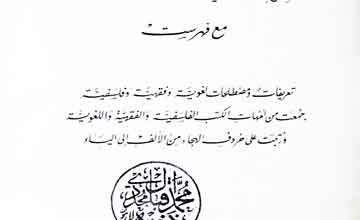 مع فهرست
تعريفات ومصطلحات لغوية وفقهية وفلسفية
جمعت من أمهات الكتب الفلسفية والفقهية واللغوية
ورتبت على حروف الهجاء من الألف إلى الياء